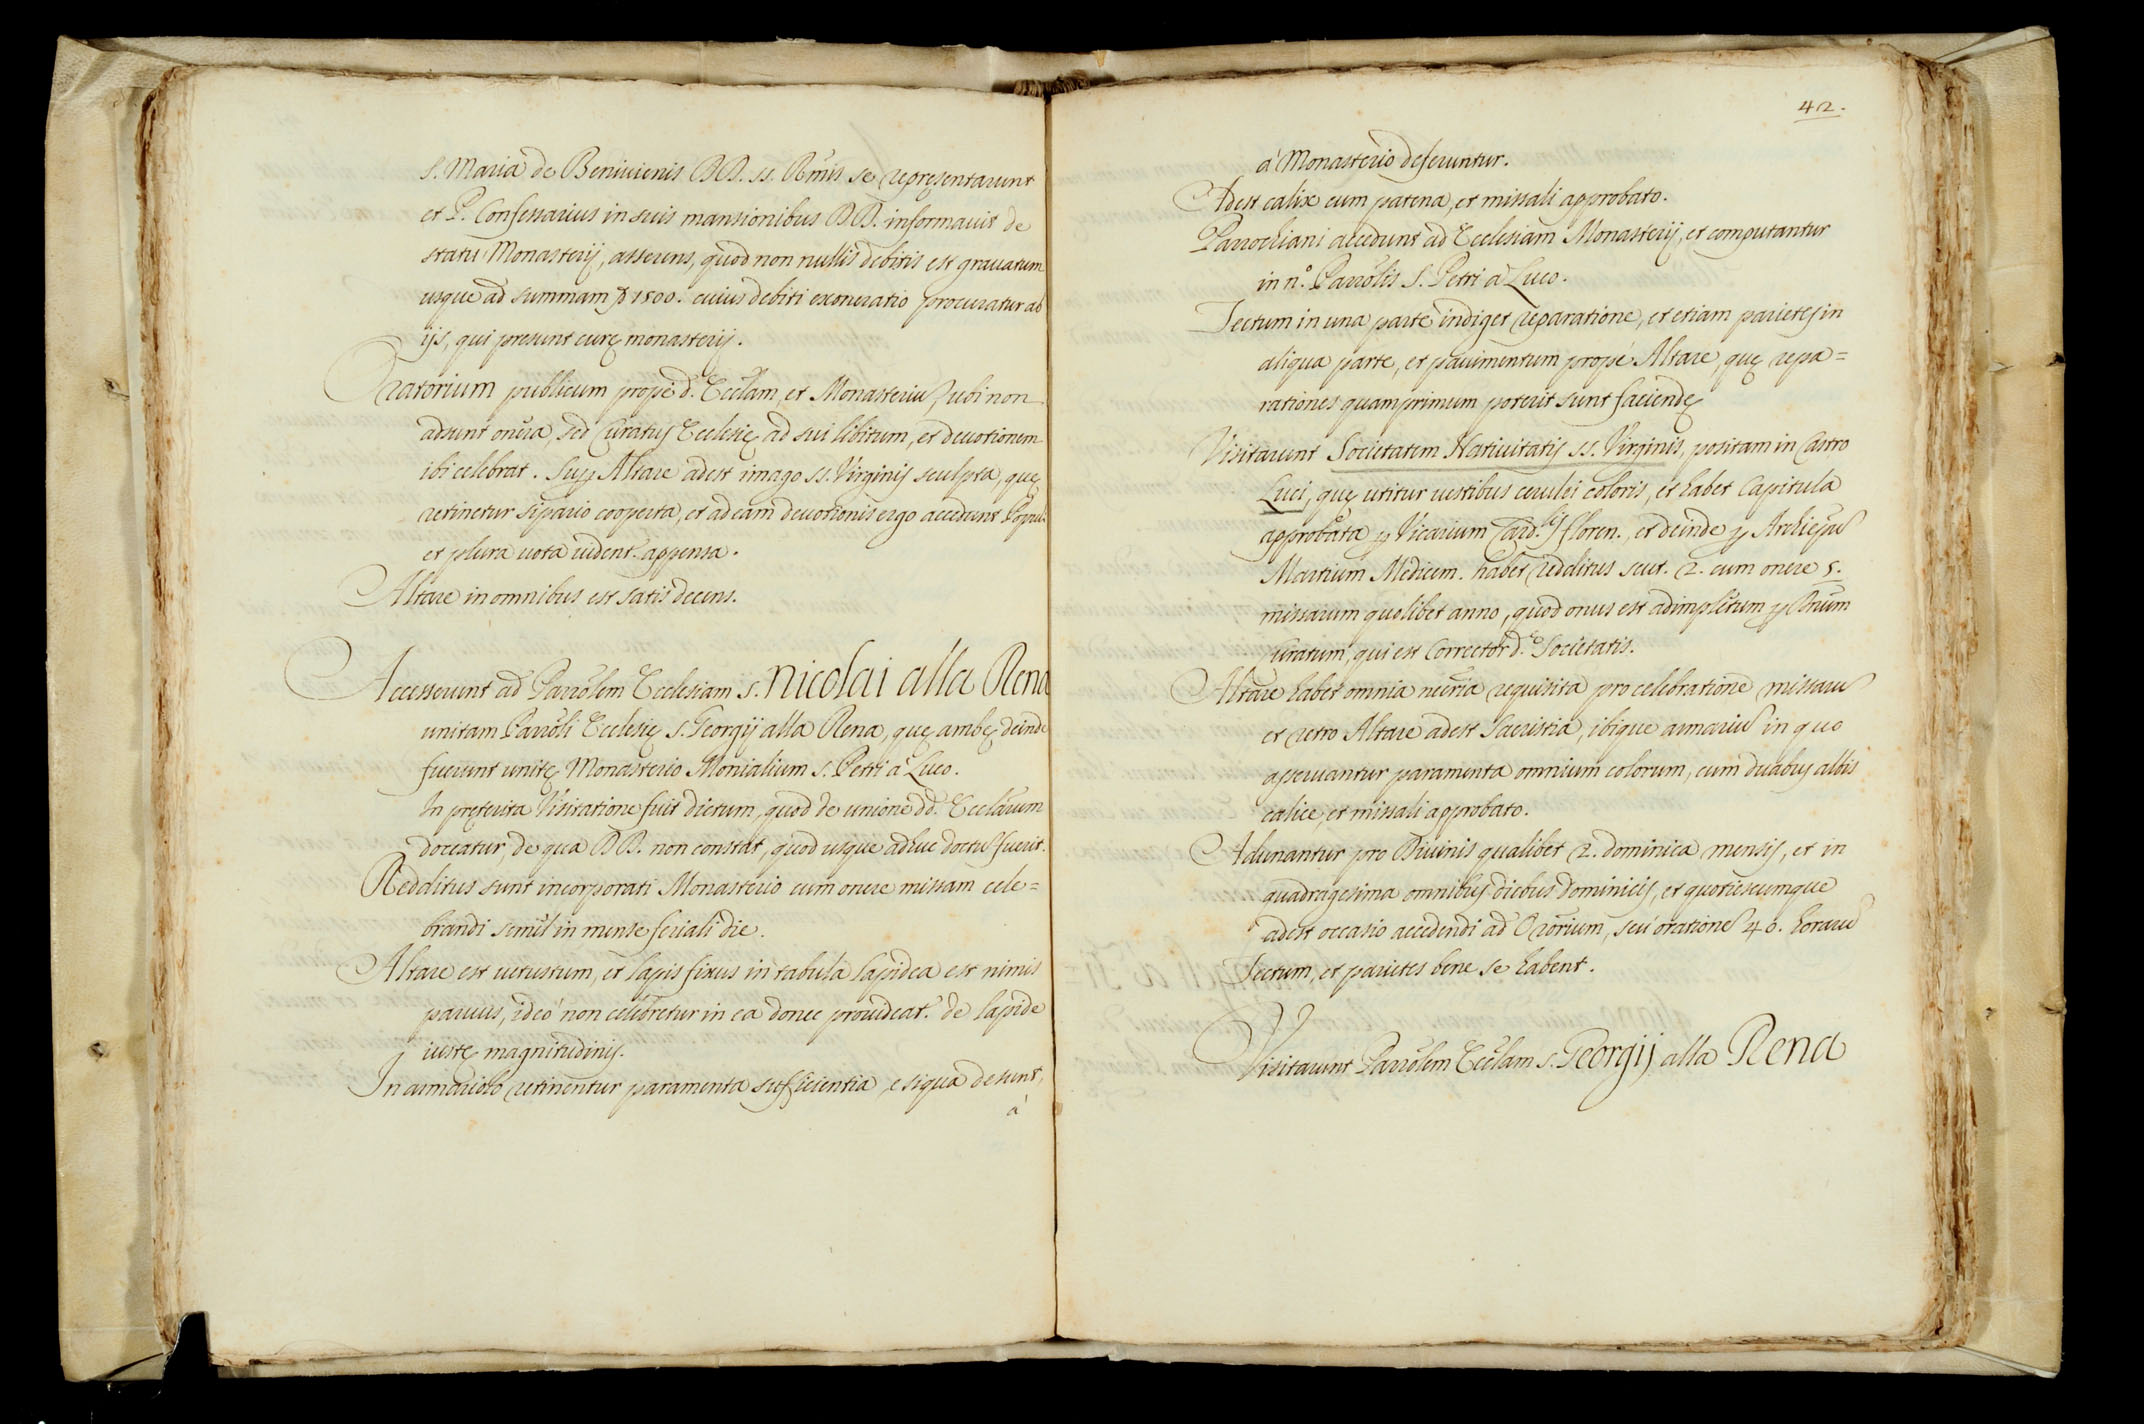 S. Maria de Beniuienis DD. ss. Rm̃is se representarunt
et P. Confessarius in suis mansionibus DD. informauit de
statu Monasterij, asserens, quod non nullis debitis est grauatum
usque ad summam 1500. cuius debiti exoneratio procuratur ab
ijs, qui presunt curę monasterij.
Oratorium publicum propè d. Eccl̃am, et Monasteriũ, ubi non
adsunt onera, sed Curatus Ecclesię ad sui libitum, et deuotionem
ibi celebrat. Sup Altare adest imago SS. Virginis sculpta, quę
retinetur sipario cooperta, et ad eam deuotionis ergo accedunt Populi
et plura uota uident.r appensa.
Altare in omnibus est satis decens.
Accesserunt ad Parrõlem Ecclesiam S. Nicolai alla Rena
unitam Parrõli Ecclesię S. Georgij alla Rena, quę ambę deinde
fuerunt unitę Monasterio Monialium S. Petri à Luco.
In pręterita Visitatione fuit dictum, quod de unione dd. Eccl̃arum
doceatur, de qua DD. non constat, quod usque adhuc doctũ fuerit.
Redditus sunt incorporati Monasterio cum onere missam cele=
brandi semel in mense feriali die.
Altare est uetustum, et lapis fixus in tabula lapidea est nimis
paruus, ideò non celebretur in ea donec prouideat.r de lapide
iustę magnitudinis.
In armariolo retinentur paramenta sufficientia, e siqua desunt,
à
42.
à Monasterio deferuntur.
Adest calix cum patena, et missali approbato.
Parrochiani accedunt ad Ecclesiam Monasterij, et computantur
in n.o Parrõlis S. Petri à Luco.
Tectum in una parte indiget reparatione, et etiam parietes in
aliqua parte, et pauimentum propè Altare, quę repa=
rationes quamprimum poterit sunt faciendę
Visitarunt Societatem Natiuitatis SS. Virginis, positam in Castro
Luci, quę utitur uestibus cerulei coloris, et habet Capitula
approbata p Vicarium Card.lis Floren., et deinde p Archiep̃um
Martium Medicem. habet redditus scut. 2. cum onere 5.
missarum quolibet anno, quod onus est adimpletum p Dnum
Curatum, qui est Corrector d. Societatis.
Altare habet omnia necr̃ia requisita pro celebratione missarũ
et retro Altare adest Sacristia, ibique armariũ in quo
asseruantur paramenta omnium colorum, cum duabus albis
calice, et missali approbato.
Adunantur pro Diuinis qualibet 2. dominica mensis, et in
quadragesima omnibus diebus Dominicis, et quotiescumque
adest occasio accedendi ad Orõrium, seù orationẽ 40. horarũ
Tectum, et parietes bene se habent.
Visitarunt Parrõlem Eccl̃am S. Georgij alla Rena